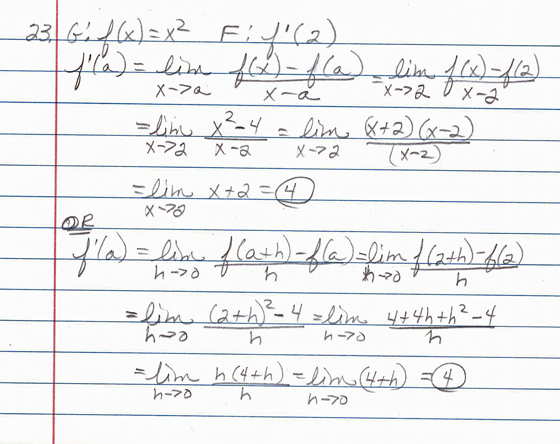 23. G: f(x) = x² F: f'(2)
f'(a) = lim x→a (f(x) - f(a))/(x - a) = lim x→2 (f(x) - f(2))/(x - 2)
= lim x→2 (x² - 4)/(x - 2) = lim x→2 ((x+2)(x-2))/((x-2))
= lim x→2 x + 2 = 4
OR
f'(a) = lim h→0 (f(a+h) - f(a))/h = lim h→0 (f(2+h) - f(2))/h
= lim h→0 ((2+h)² - 4)/h = lim h→0 (4 + 4h + h² - 4)/h
= lim h→0 (h(4+h))/h = lim h→0 (4+h) = 4